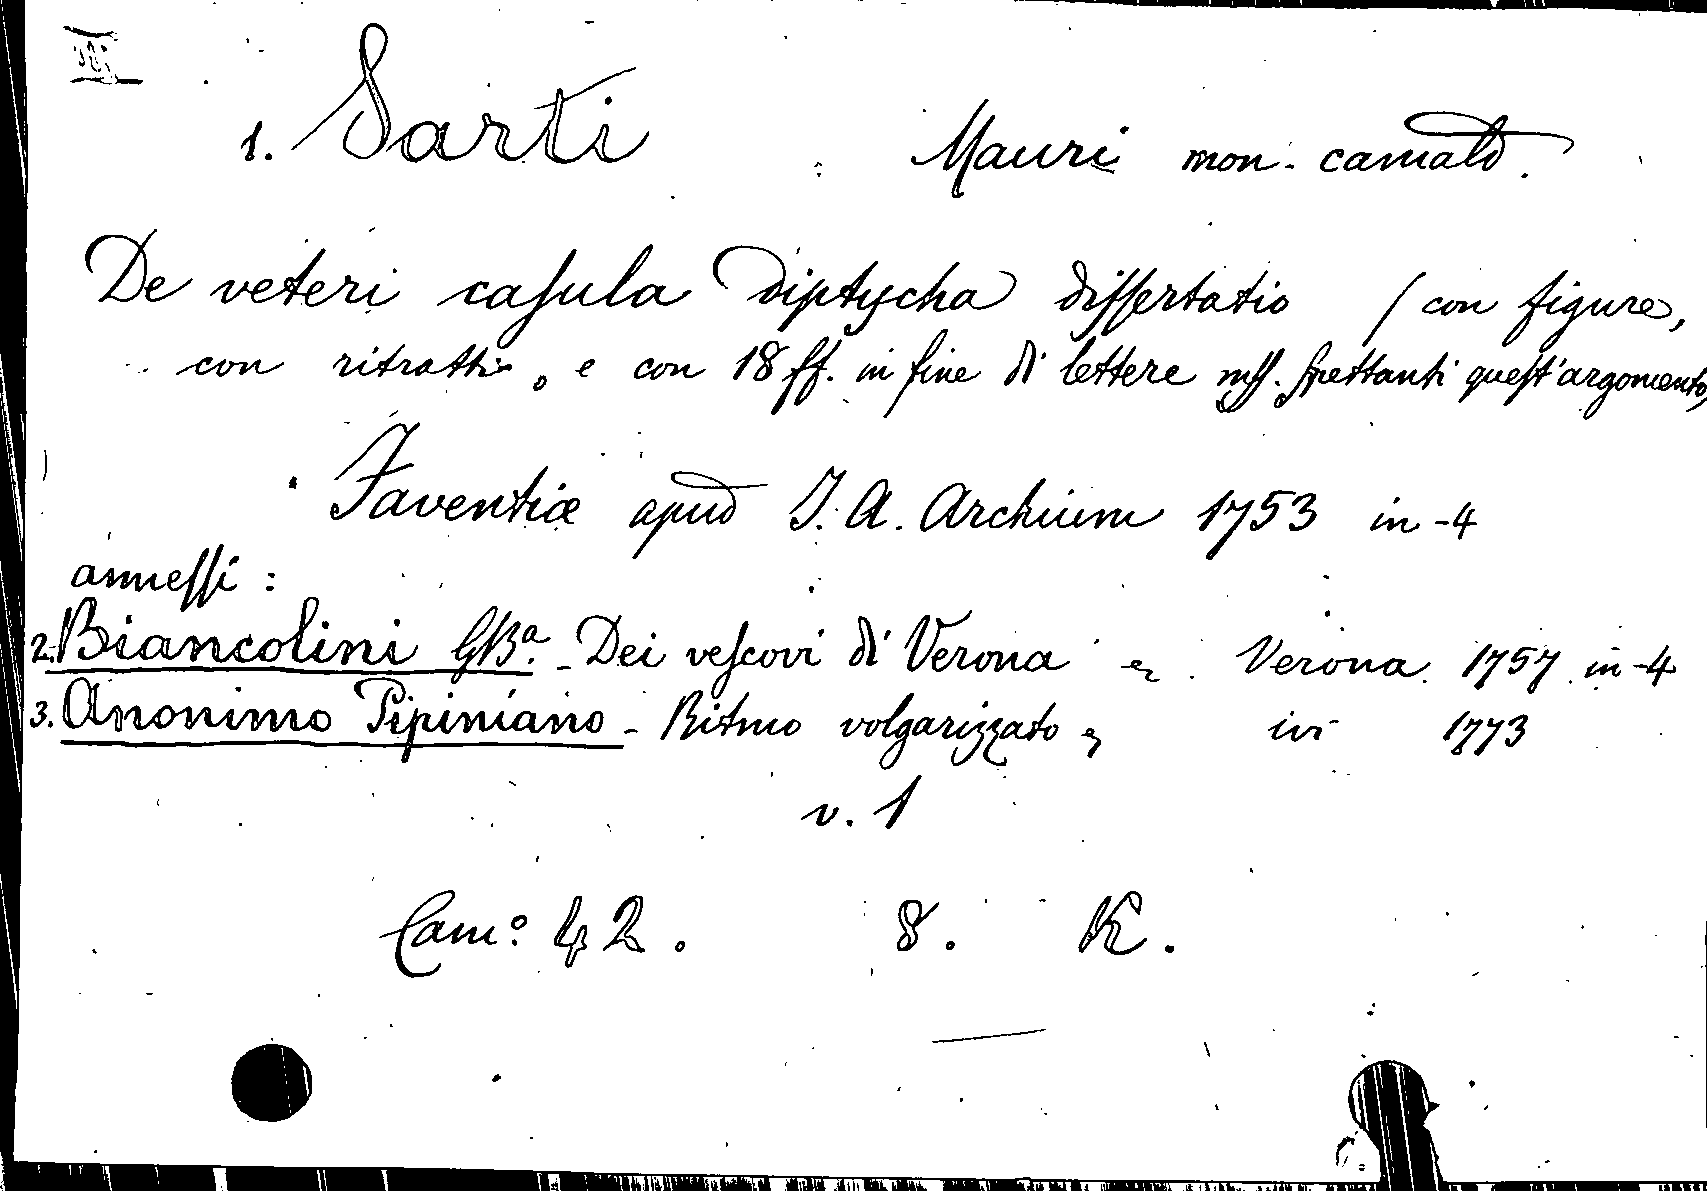 1. Sarti Mauri mon. camald.
De veteri casula diptycha dissertatio (con figure,
con ritratti, e con 18 ff. in fine di lettere mss. spettanti quest'argomento)
Faventiæ apud J. A. Archium 1753 in-4
annessi:
2. Biancolini GBa. - Dei vescovi di Verona Verona 1757 in-4
3. Anonimo Pipiniano - Ritmo volgarizzato ivi 1773
v. 1
Cam.º 42. 8. K.